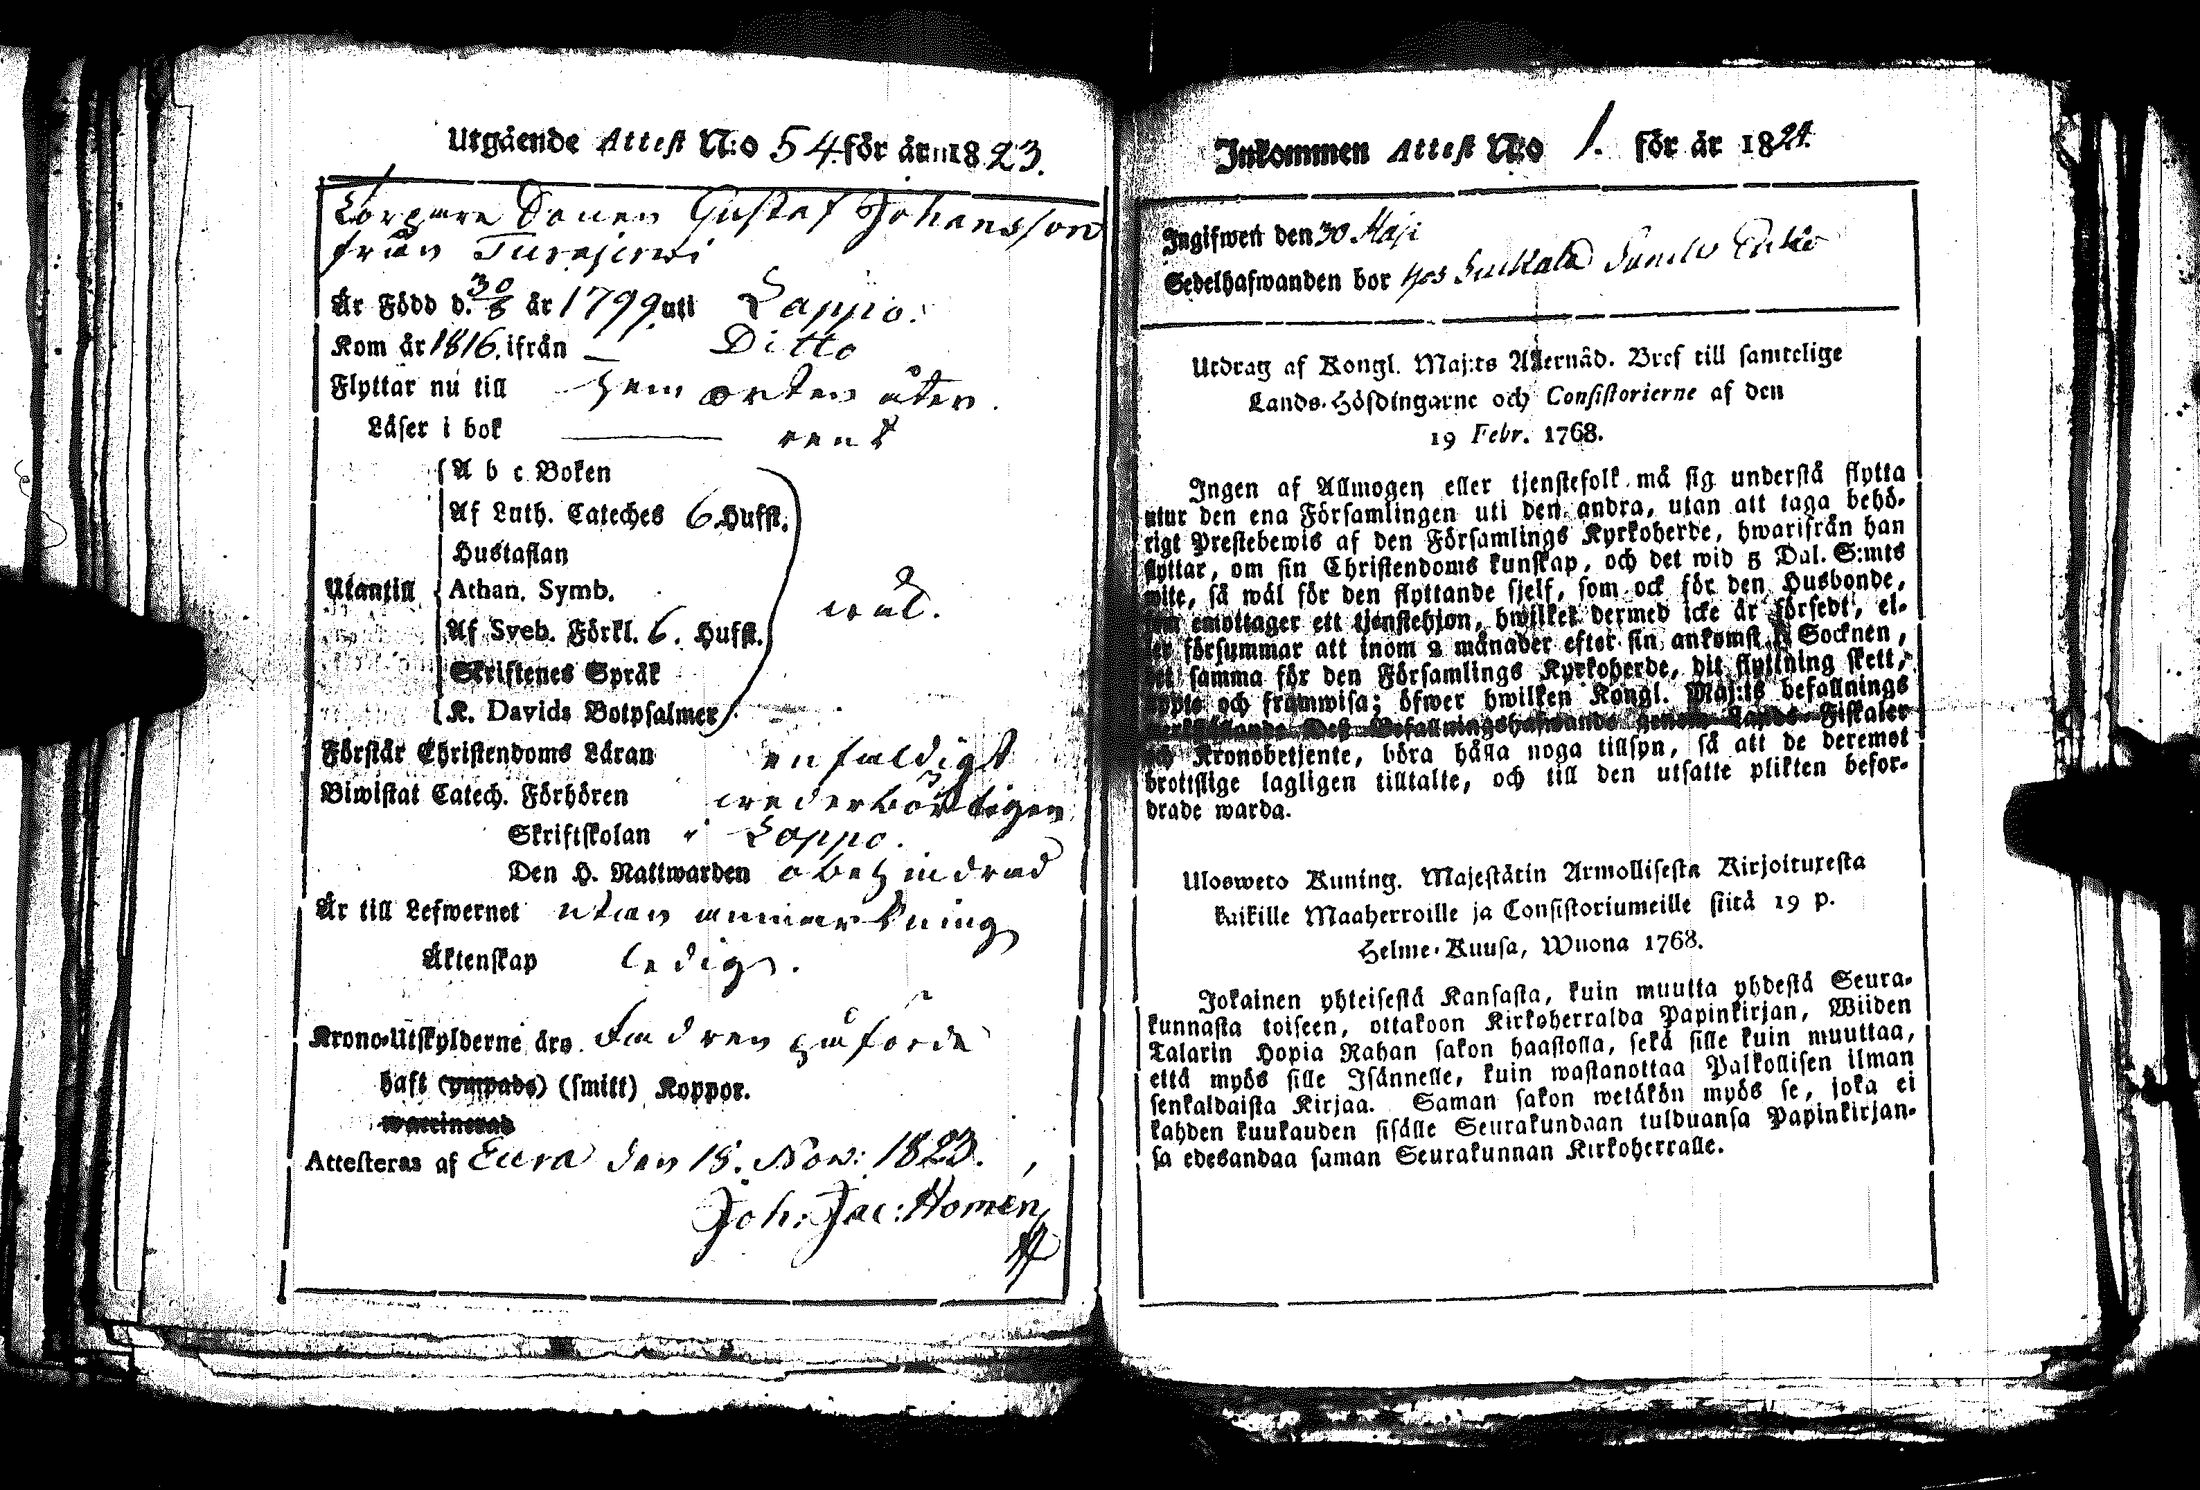 Utgående Attest N:o 54. för år 1823.
Torpare Sonen Gustaf Johansson
från Turajerwi
Är Född d. 30/8 år 1799 uti Lappo.
Kom år 1816. ifrån Ditto
Flyttar nu till hemorten åter.
Läser i bok rent
A b c Boken
Af Luth. Cateches 6 Hufst.
Hustaflan
Utantill Athan. Symb. wäl.
Af Sveb. Förkl. 6. Hufst.
Skriftenes Språk
K. Davids Botpsalmer
Förstår Christendoms Läran enfaldigt
Biwistat Catech. Förhören wederbörligen
Skriftskolan i Lappo.
Den H. Nattwarden obehindrad
Är till Lefwernet utan anmärkning
Äktenskap ledig.
Krono-Utskylderne äro Fadren påförde
haft (ympade) (smitt) Koppor.
waccinerad
Attesteras af Eura den 18. Nov: 1823.
Joh: Jac: Homén
Inkommen Attest N:o 1. för år 1824.
Ingifwen den 30 Maji
Sedelhafwanden bor hos
Utdrag af Kongl. Maj:ts Allernåd. Bref till samtelige
Lands-Höfdingarne och Consistorierne af den
19 Febr. 1768.
Ingen af Allmogen eller tjenstefolk må sig understå flytta
utur den ena Församlingen uti den andra, utan att taga behö-
rigt Prestebewis af den Församlings Kyrkoherde, hwarifrån han
flyttar, om sin Christendoms kunskap, och det wid 5 Dal. S:mts
wite, så wäl för den flyttande sjelf, som ock för den Husbonde,
som emottager ett tjenstehjon, hwilket dermed icke är försedt, el-
ler försummar att inom 2 månader efter sin ankomst i Socknen,
det samma för den Församlings Kyrkoherde, dit flyttning skett,
uppte och framwisa; öfwer hwilken Kongl. Maj:ts befallnings
werkställande Dess Befallningshafwande genom Lands-Fiskaler
och Kronobetjente, böra hålla noga tillsyn, så att de deremot
brottslige lagligen tilltalte, och till den utsatte plikten befor-
drade warda.
Ulosweto Kuning. Majestätin Armollisesta Kirjoituxesta
kaikille Maaherroille ja Consistoriumeille siitä 19 p.
Helme-Kuusa, Wuona 1768.
Jokainen yhteisestä Kansasta, kuin muutta yhdestä Seura-
kunnasta toiseen, ottakoon Kirkoherralda Papinkirjan, Wiiden
Talarin Hopia Rahan sakon haastolla, sekä sille kuin muuttaa,
että myös sille Isännelle, kuin wastanottaa Palkollisen ilman
senkaldaista Kirjaa. Saman sakon wetäkön myös se, joka ei
kahden kuukauden sisälle Seurakundaan tulduansa Papinkirjan-
sa edesandaa saman Seurakunnan Kirkoherralle.